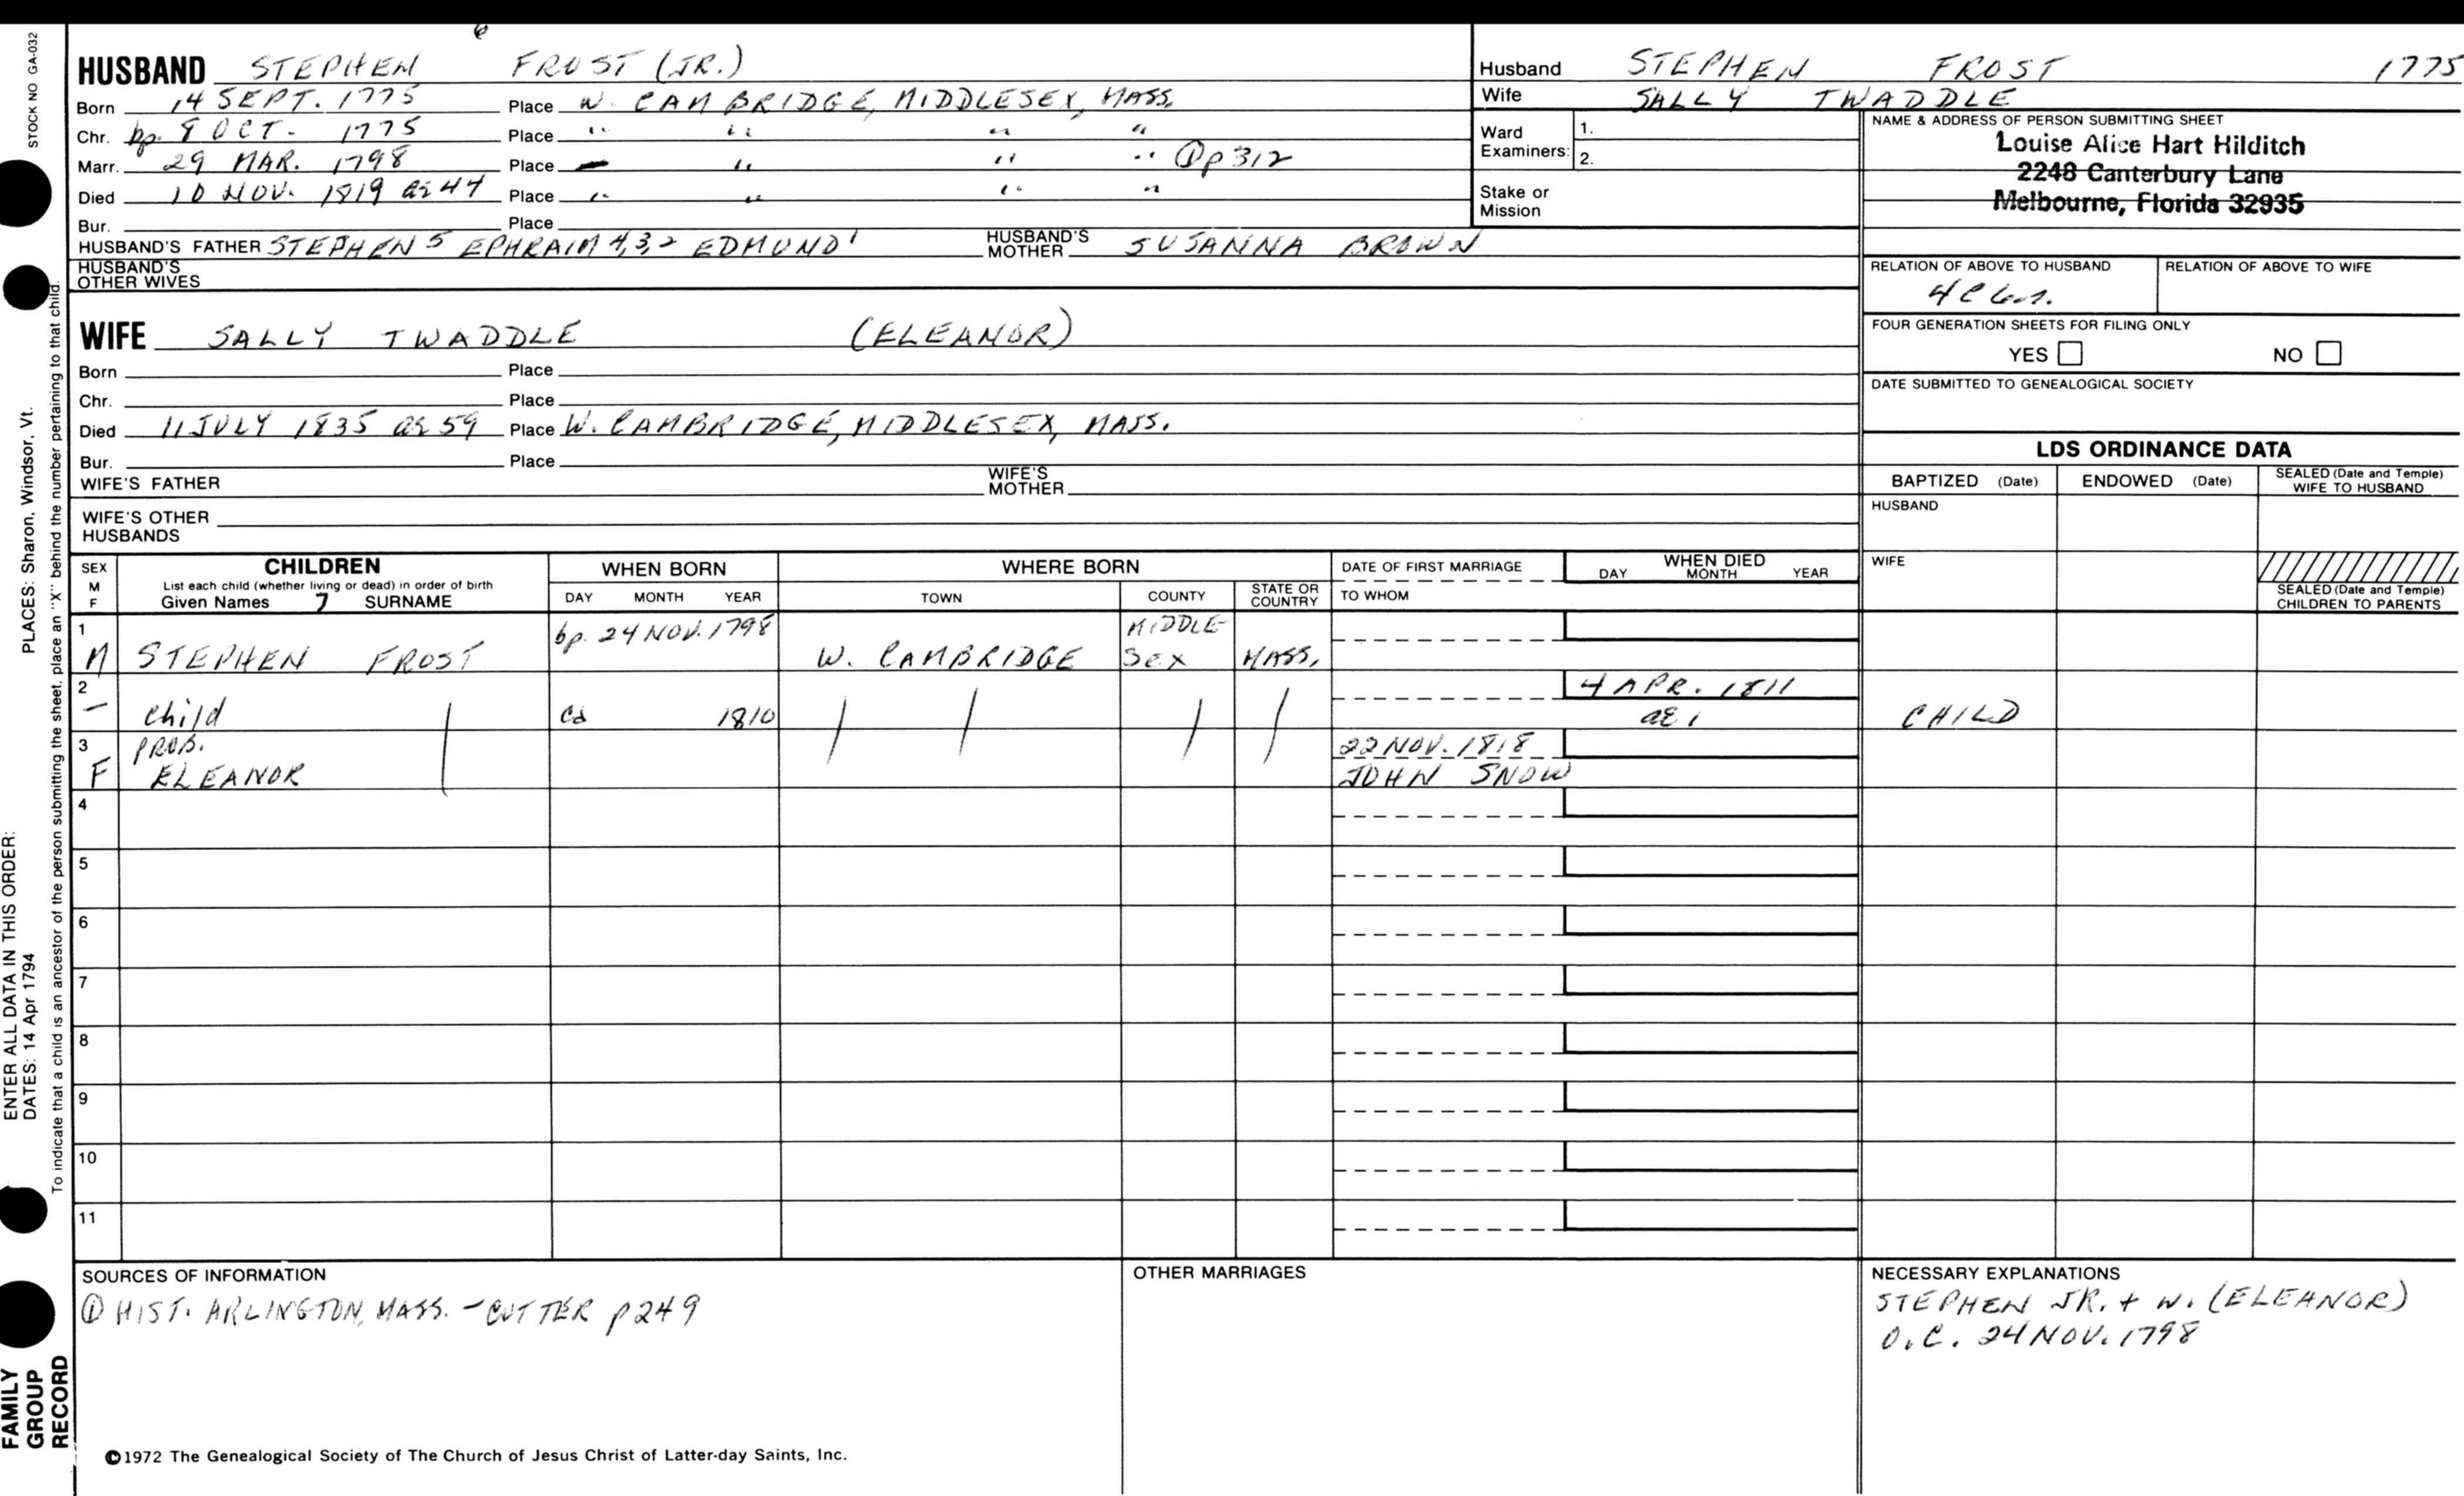 6
HUSBAND STEPHEN FROST (JR.)
Born 14 SEPT. 1775 Place W. CAMBRIDGE, MIDDLESEX, MASS.
Chr. bp. 8 OCT. 1775 Place " " " "
Marr. 29 MAR. 1798 Place " " " " ① p 312
Died 10 NOV. 1819 ae 44 Place " " " "
Bur. Place
HUSBAND'S FATHER STEPHEN 5 EPHRAIM 4,3,2 EDMUND 1 HUSBAND'S MOTHER SUSANNA BROWN
HUSBAND'S OTHER WIVES
WIFE SALLY TWADDLE (ELEANOR)
Born Place
Chr. Place
Died 11 JULY 1835 ae 59 Place W. CAMBRIDGE, MIDDLESEX, MASS.
Bur. Place
WIFE'S FATHER WIFE'S MOTHER
WIFE'S OTHER HUSBANDS
Husband STEPHEN FROST 1775
Wife SALLY TWADDLE
Ward Examiners: 1.
2.
Stake or Mission
NAME & ADDRESS OF PERSON SUBMITTING SHEET
Louise Alice Hart Hilditch
2248 Canterbury Lane
Melbourne, Florida 32935
RELATION OF ABOVE TO HUSBAND RELATION OF ABOVE TO WIFE
4C
FOUR GENERATION SHEETS FOR FILING ONLY
YES NO
DATE SUBMITTED TO GENEALOGICAL SOCIETY
LDS ORDINANCE DATA
BAPTIZED (Date) ENDOWED (Date) SEALED (Date and Temple) WIFE TO HUSBAND
HUSBAND
WIFE
SEALED (Date and Temple) CHILDREN TO PARENTS
SEX M F
CHILDREN
List each child (whether living or dead) in order of birth
Given Names 7 SURNAME
WHEN BORN
DAY MONTH YEAR
WHERE BORN
TOWN COUNTY STATE OR COUNTRY
DATE OF FIRST MARRIAGE
TO WHOM
WHEN DIED
DAY MONTH YEAR
1 M STEPHEN FROST bp. 24 NOV. 1798 W. CAMBRIDGE MIDDLESEX MASS.
2 – child ca 1810 4 APR. 1811 ae 1 CHILD
3 F PROB. ELEANOR 22 NOV. 1818 JOHN SNOW
4
5
6
7
8
9
10
11
SOURCES OF INFORMATION
① HIST. ARLINGTON, MASS. – CUTTER p 249
OTHER MARRIAGES
NECESSARY EXPLANATIONS
STEPHEN JR. + W. (ELEANOR)
O.C. 24 NOV. 1798
©1972 The Genealogical Society of The Church of Jesus Christ of Latter-day Saints, Inc.
STOCK NO GA-032
PLACES: Sharon, Windsor, Vt.
ENTER ALL DATA IN THIS ORDER:
DATES: 14 Apr 1794
To indicate that a child is an ancestor of the person submitting the sheet, place an "X" behind the number pertaining to that child.
FAMILY
GROUP
RECORD